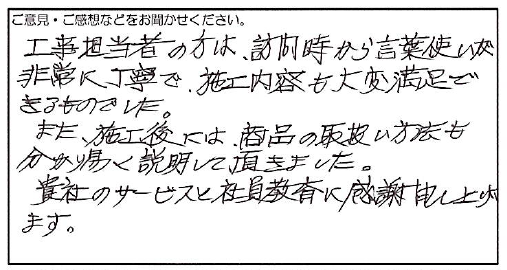 ご意見・ご感想などをお聞かせください。
工事担当者の方は、訪問時から言葉使いが
非常に丁寧で、施工内容も大変満足で
きるものでした。
また、施工後には、商品の取扱い方法も
分かり易く説明して頂きました。
貴社のサービスと社員教育に感謝申し上げ
ます。